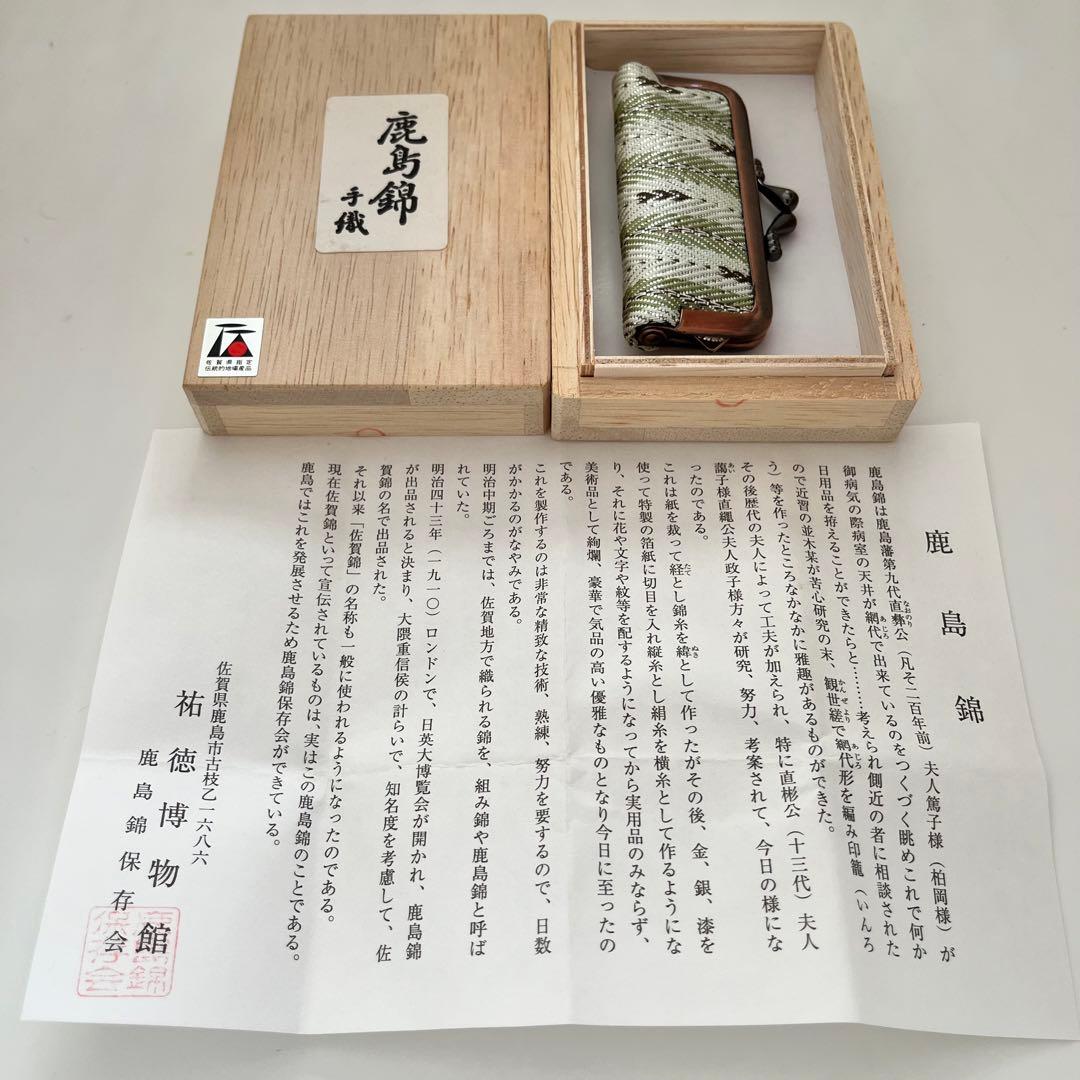 鹿島錦
手織
佐賀県指定
伝統的地場産品
鹿島錦
鹿島錦は鹿島藩第九代直彝公（凡そ二百年前）夫人篤子様（柏岡様）が
なおのり
御病気の際病室の天井が網代で出来ているのをつくづく眺めこれで何か
あじろ
日用品を拵えることができたらと………考えられ側近の者に相談された
ので近習の並木某が苦心研究の末、観世縒で網代形を編み印籠（いんろ
かんぜより
あじろ
う）等を作ったところなかなかに雅趣があるものができた。
その後歴代の夫人によって工夫が加えられ、特に直彬公（十三代）夫人
藹子様直縄公夫人政子様方々が研究、努力、考案されて、今日の様にな
あい
ったのである。
これは紙を裁って経とし錦糸を緯として作ったがその後、金、銀、漆を
たて
ぬき
使って特製の箔紙に切目を入れ縦糸とし絹糸を横糸として作るようにな
り、それに花や文字や紋等を配するようになってから実用品のみならず、
美術品として絢爛、豪華で気品の高い優雅なものとなり今日に至ったの
である。
これを製作するのは非常な精致な技術、熟練、努力を要するので、日数
がかかるのがなやみである。
明治中期ごろまでは、佐賀地方で織られる錦を、組み錦や鹿島錦と呼ば
れていた。
明治四十三年（一九一〇）ロンドンで、日英大博覧会が開かれ、鹿島錦
が出品されると決まり、大隈重信侯の計らいで、知名度を考慮して、佐
賀錦の名で出品された。
それ以来「佐賀錦」の名称も一般に使われるようになったのである。
現在佐賀錦といって宣伝されているものは、実はこの鹿島錦のことである。
鹿島ではこれを発展させるため鹿島錦保存会ができている。
佐賀県鹿島市古枝乙一六八六
祐徳博物館
鹿島錦保存会
鹿島錦
保存会